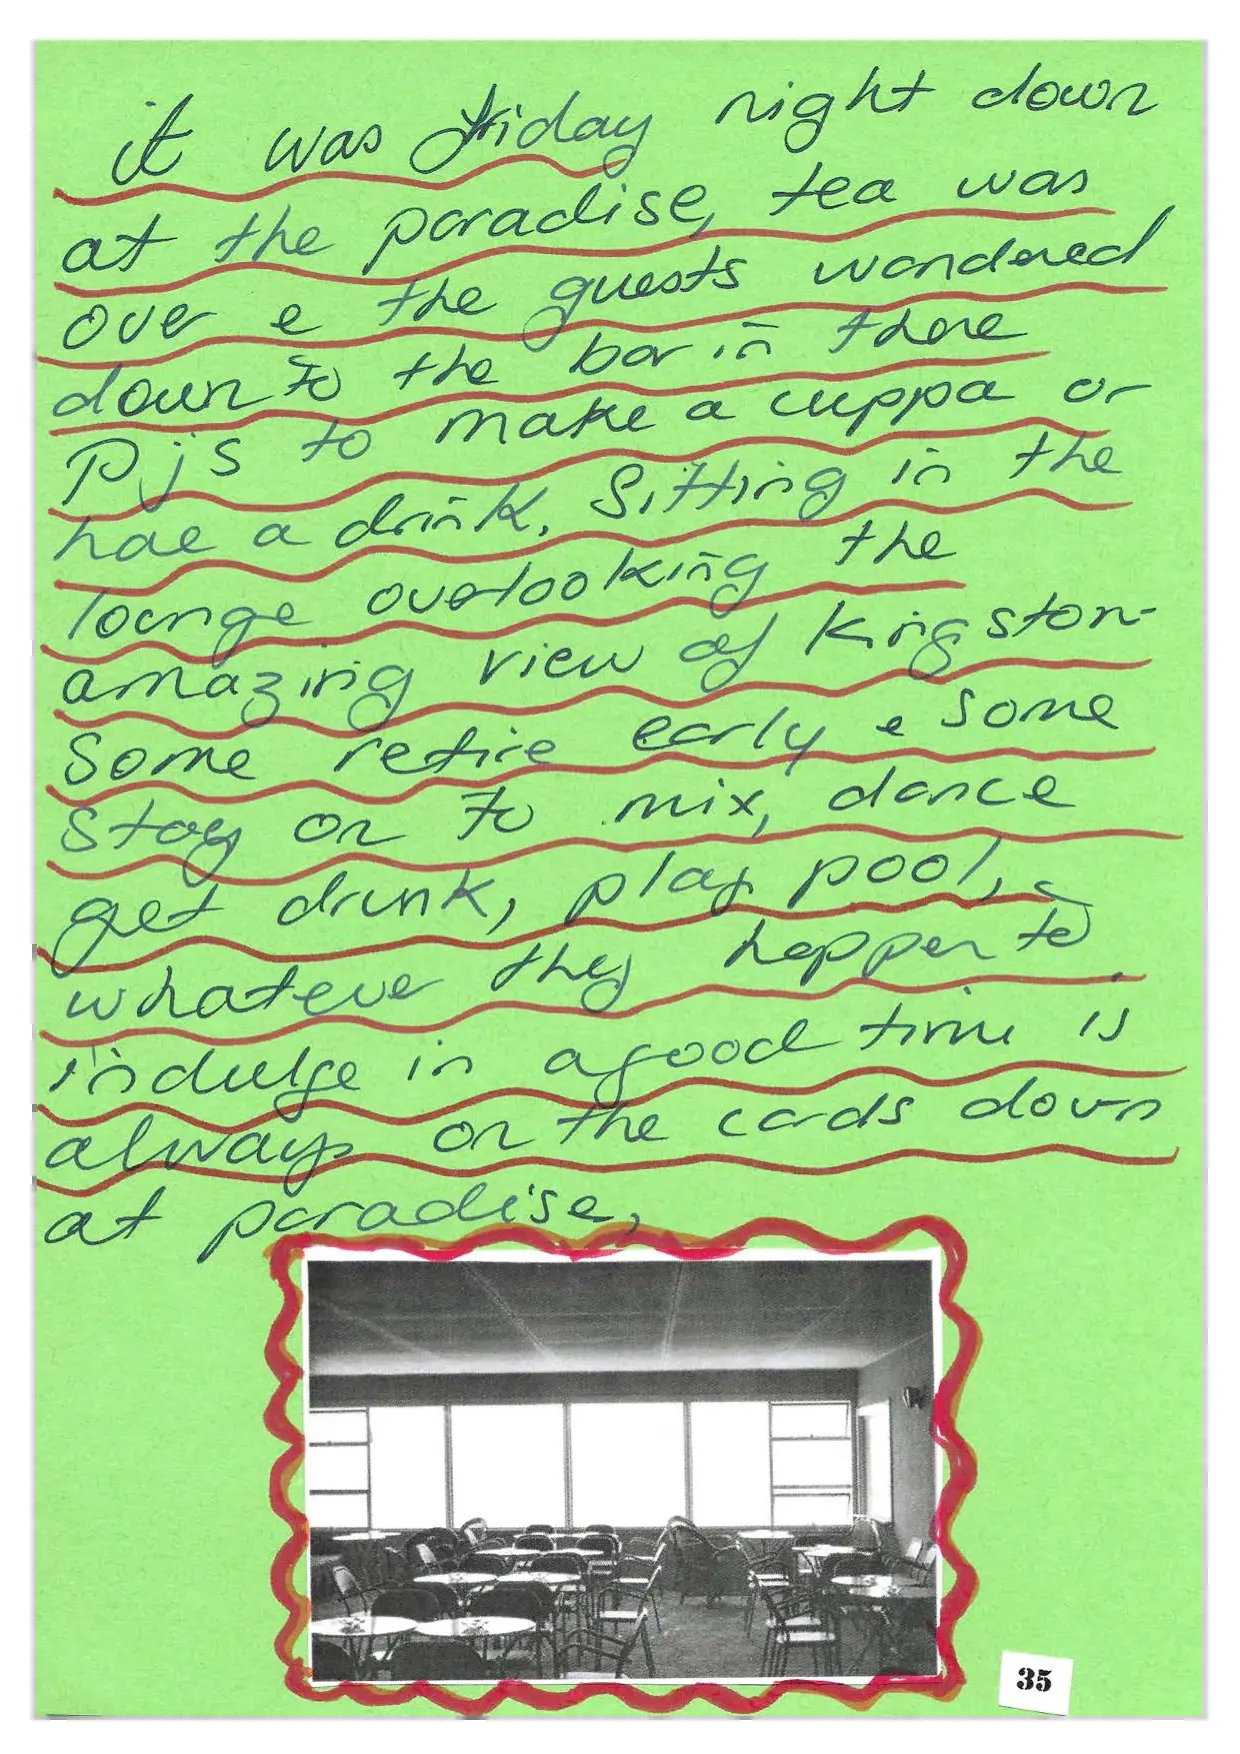 it was friday night down
at the paradise, tea was
over e the guests wandered
down to the bar in there
Pjs to make a cuppa or
hae a drink. Sitting in the
lounge overlooking the
amazing view of Kingston-
Some retire early e some
Stay on to mix, dance
get drunk, play pool,
whatever they happen to
indulge in a good time is
always on the cards down
at paradise,
35